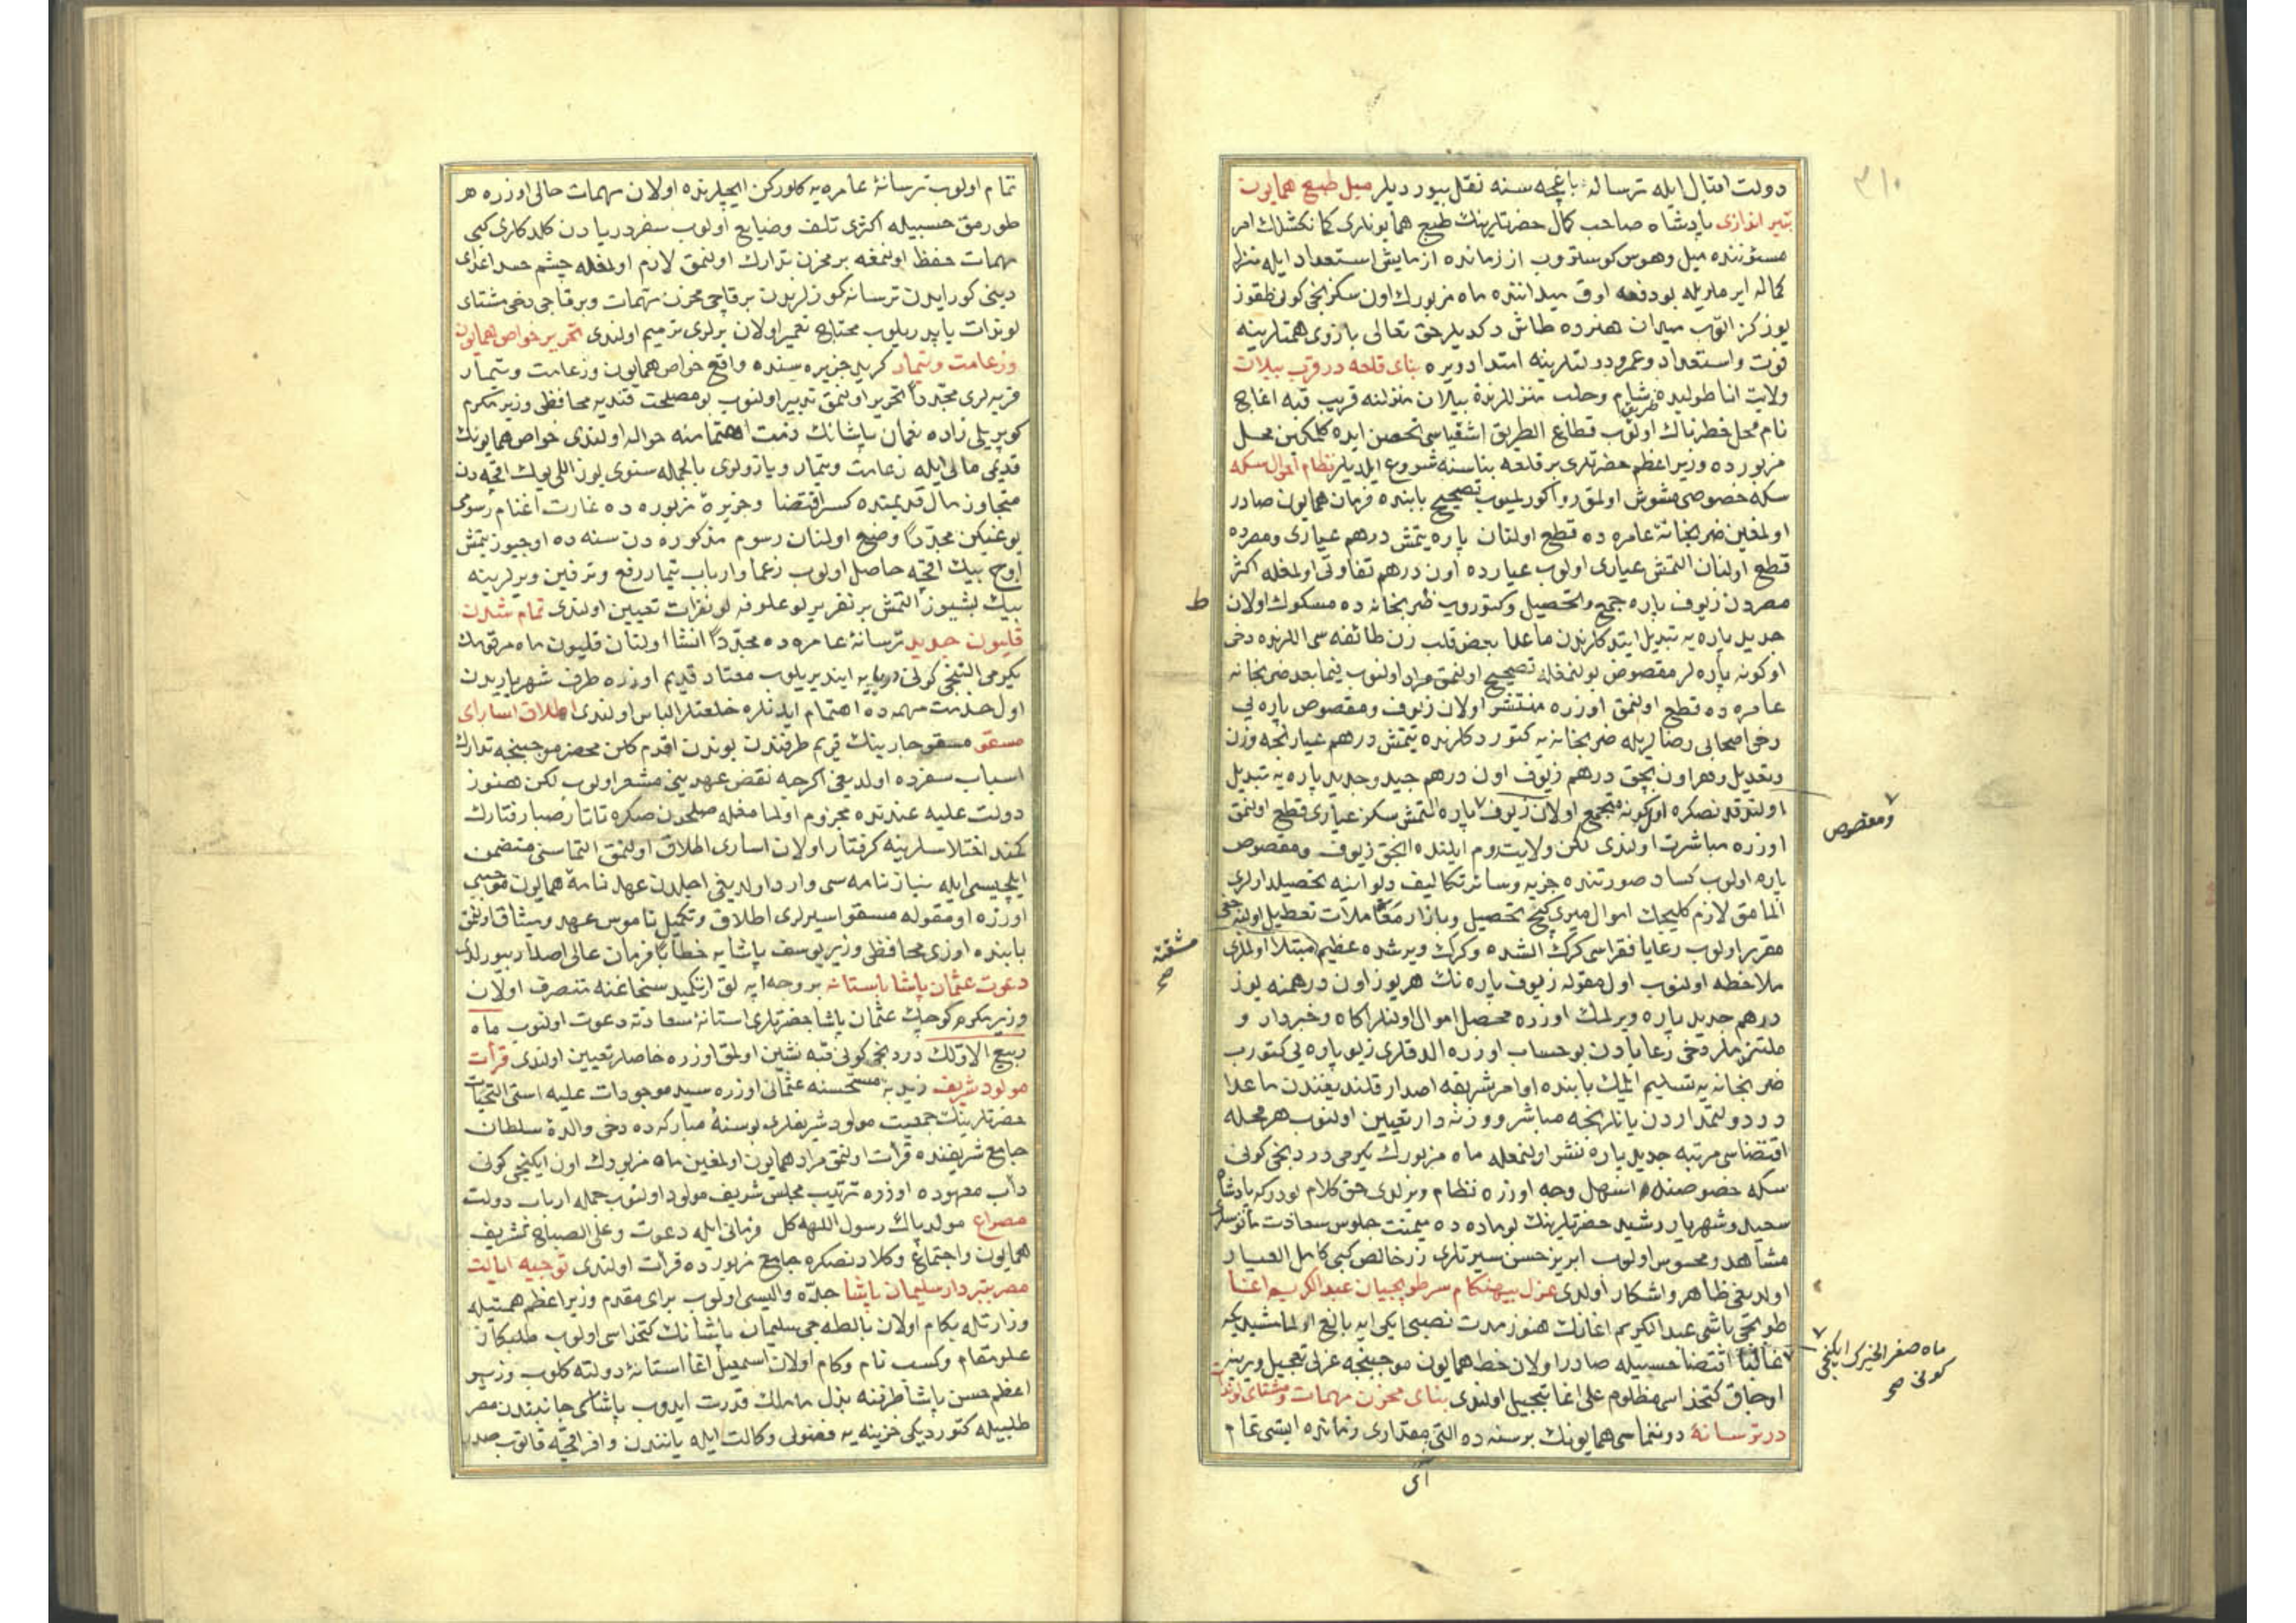 ٣١٠
دولت اقبال ایله ترسانه باغچه سنه نقل بیوردیلر میل طبع همایون
بتیر اندازی پادشاه صاحب کمال حضرتلرینك طبع همایونلری کمانکشلك امر
مسنوننده میل وهوس کوستروب از زمانده ازمایش استعداد ایله منزل
کماله ایرمالریله بو دفعه اوق میداننده ماه مزبورك اون سکزنجی کونی طقوز
یوز کز اتوب میدان هنرده طاش دکدیلر حق تعالی بازوی همتلرینه
قوت واستعداد وعمر ودولتلرینه امتداد ویره بنای قلعه در قرب بیلان
ولایت اناطولیده شام وحلب منزللرنده بیلان منزلنه قریب قبه اغاج
طریق
نام محل خطرناك اولوب قطاع الطریق اشقیاسی تحصن ایده کلمکین محل
مزبورده وزیر اعظم حضرتلری بر قلعه بناسنه شروع ایلدیلر نظام احوال سکه
سکه خصوصی مشوش اولمق روا کورلمیوب تصحیح بابنده فرمان همایون صادر
اولمغین ضربخانهٔ عامره ده قطع اولنان پاره یتمش درهم عیاری ومصرده
قطع اولنان التمش عیاری اولوب عیارده اون درهم تفاوتی اولمغله اکثر
مصردن زیوف پاره جمع وتحصیل وکتوروب ضربخانه ده مسکوك اولان
ط
جدید پاره یه تبدیل ایتدکلرندن ماعدا بعض قلب زن طائفه سی اللرنده دخی
اوکونه پاره لر مقصوص بولنمغله تصحیح اولنمق مراد اولنوب فیما بعد ضربخانه
عامره ده قطع اولنمق اوزره منتشر اولان زیوف ومقصوص پاره یی
دخی اصحابی رضالریله ضربخانه یه کتوردکلرنده یتمش درهم عیارنجه وزن
وتعدیل وهر اون بچق درهم زیوف اون درهم جید وجدید پاره یه تبدیل
اولندقدنصکره اول کونه متجمع اولان زیوف پاره التمش سکز عیاری قطع اولنمق
ومقصوص
اوزره مباشرت اولندی لکن ولایت روم ایلنده انجق زیوف ومقصوص
پاره اولوب کساد صورتنده جزیه وسائر تکالیف دیوانیه تحصیلدارلری
الماق لازم کلیجك اموال میری کیچ تحصیل وبازار معاملات تعطیل اولنه جغی
مقرر اولوب رعایا فقراسی کرك الشده وکرك ویرشده عظیم مبتلا اولملری
مشقته
صح
ملاحظه اولنوب اول مقوله زیوف پاره نك هر یوز اون درهمنه یوز
درهم جدید پاره ویرلمك اوزره محصل اموال اولنلر اکاه وخبردار و
ملتزملر دخی رعایادن بو حساب اوزره الدقلری زیو پاره یی کتورب
ضربخانه یه تسلیم ایلمك بابنده اوامر شریفه اصدار قلندیغندن ماعدا
در دولتمداردن یانلرنجه مباشر ووزنه دار تعیین اولنوب هر محله
اقتضاسی مرتبه جدید پاره نشر اولنمغله ماه مزبورك یکرمی دردنجی کونی
سکه خصوصنده اسهل وجه اوزره نظام ویرلدی حق کلام بودرکه پادشاه
سعید وشهریار رشید حضرتلرینك بو ماده ده میمنت جلوس سعادت مأنوسلری
مشاهد ومحسوس اولوب ابریز حسن سیرتلری زر خالص کبی کامل العیار
اولدیغی ظاهر واشکار اولدی عزل بیهنکام سر طوپجیان عبدالکریم اغا
طوپجی باشی عبدالکریم اغانك هنوز مدت نصبی ایکی ایه بالغ اولمامشیدیکه
غالبا اقتضا حسبیله صادر اولان خط همایون موجبنجه عزلی تعجیل ویرینه
ماه صفر الخیرك ایکنجی
کونی صح
اوجاق کتخداسی مظلوم علی اغا تبجیل اولندی بنای مخزن مهمات ومشتای لوندات
در ترسانهٔ دوننماسی همایونك بر سنه ده التی مقداری زمانده ایشی تمام
آی
تمام اولوب ترسانهٔ عامره یه کلورکن ایچلرنده اولان مهمات حالی اوزره هر
طورمق حسبیله اکثری تلف وضایع اولوب سفر دریادن کلدکلری کبی
مهمات حفظ اولنمغه بر مخزن تدارك اولنمق لازم اولمغله چشم حسد اعدای
دینی کور ایدن ترسانه کوزلرندن بر قاچی مخزن مهمات وبر قاچی دخی مشتای
لوندات یاپدریلوب محتاج تعمیر اولان یرلری ترمیم اولندی تحریر خواص همایون
وزعامت وتیمار کرید جزیره سنده واقع خواص همایون وزعامت وتیمار
قریه لری مجددا تحریر اولنمق تدبیر اولنوب بو مصلحت قندیه محافظی وزیر مکرم
کوپریلی زاده نعمان پاشانك ذمت اهتمامنه حواله اولندی خواص همایونك
قدیمی مالی ایله زعامت وتیمار ویازولری بالجمله سنوی یوز اللی یوك اقچه دن
متجاوز مال قدیمنده کسر اقتضا وجزیرهٔ مزبوره ده عادت اغنام رسومی
یوغیکن مجددا وضع اولنان رسوم مذکوره دن سنه ده اوچیوز یتمش
اوچ بیك اقچه حاصل اولوب زعما وارباب تیمار رفع وترقین ویرلرینه
بیك بشیوز التمش بر نفر یرلو علوفه لو نفرات تعیین اولندی تمام شدن
قلیون جدید ترسانهٔ عامره ده مجددا انشا اولنان قلیون ماه مرقومك
یکرمی التنجی کونی دریایه ایندیریلوب معتاد قدیم اوزره طرف شهریاریدن
اول خدمت مهمه ده اهتمام ایدنلره خلعتلر الباس اولندی اطلاق اسارای
مسقو مسقو چارینك قریم طرفندن بوندن اقدم کلن محضر موجبنجه تدارك
اسباب سفرده اولدیغی اکرچه نقض عهدینی مشعر اولوب لکن هنوز
دولت علیه عندنده مجزوم اولمامغله صلحدن صکره تاتار صبا رفتارك
کمند اختلاسلرینه کرفتار اولان اساری اطلاق اولنمق التماسنی متضمن
ایلچیسی ایله نیازنامه سی وارد اولدیغی اجلدن عهدنامهٔ همایون موجبی
اوزره او مقوله مسقو اسیرلری اطلاق وتکمیل ناموس عهد ومیثاق اولنمق
بابنده اوزی محافظی وزیر یوسف پاشایه خطابا فرمان عالی اصدار بیورلدی
دعوت عثمان پاشا باستانه بر وجه ارپه لق ازنکمید سنجاغنه متصرف اولان
وزیر مکرم کوچك عثمان پاشا حضرتلری استانهٔ سعادته دعوت اولنوب ماه
ربیع الاولك دردنجی کونی قبه نشین اولمق اوزره خاصلر تعیین اولندی قرأت
مولود شریف زیدبه مستحسنه عثمانی اوزره سید موجودات علیه اسنی التحیات
حضرتلرینك جمعیت مولود شریفلری بو سنهٔ مبارکه ده دخی والدهٔ سلطان
جامع شریفنده قرأت اولنمق مراد همایون اولمغین ماه مزبورك اون ایکنجی کونی
دأب معهوده اوزره ترتیب مجلس شریف مولود اولنوب جمله ارباب دولت
مصراع مولد پاك رسول اللهه کل فرمانی ایله دعوت وعلی الصباح تشریف
همایون واجتماع وکلادنصکره جامع مزبورده قرأت اولندی توجیه ایالت
مصر بتبردار سلیمان پاشا جده والیسی اولوب برای مقدم وزیر اعظم همتیله
وزارتله بکام اولان بالطه جی سلیمان پاشانك کتخداسی اولوب طلبکار
علو مقام وکسب نام وکام اولان اسمعیل اغا استانهٔ دولته کلوب وزیر
اعظم حسن پاشا طرفنه بذل ما ملك قدرت ایدوب پاشاسی جانبندن مصر
طلبیله کتوردیکی خزینه یه فضولی وکالت ایله یانندن وافر اقچه قاتوب صدر